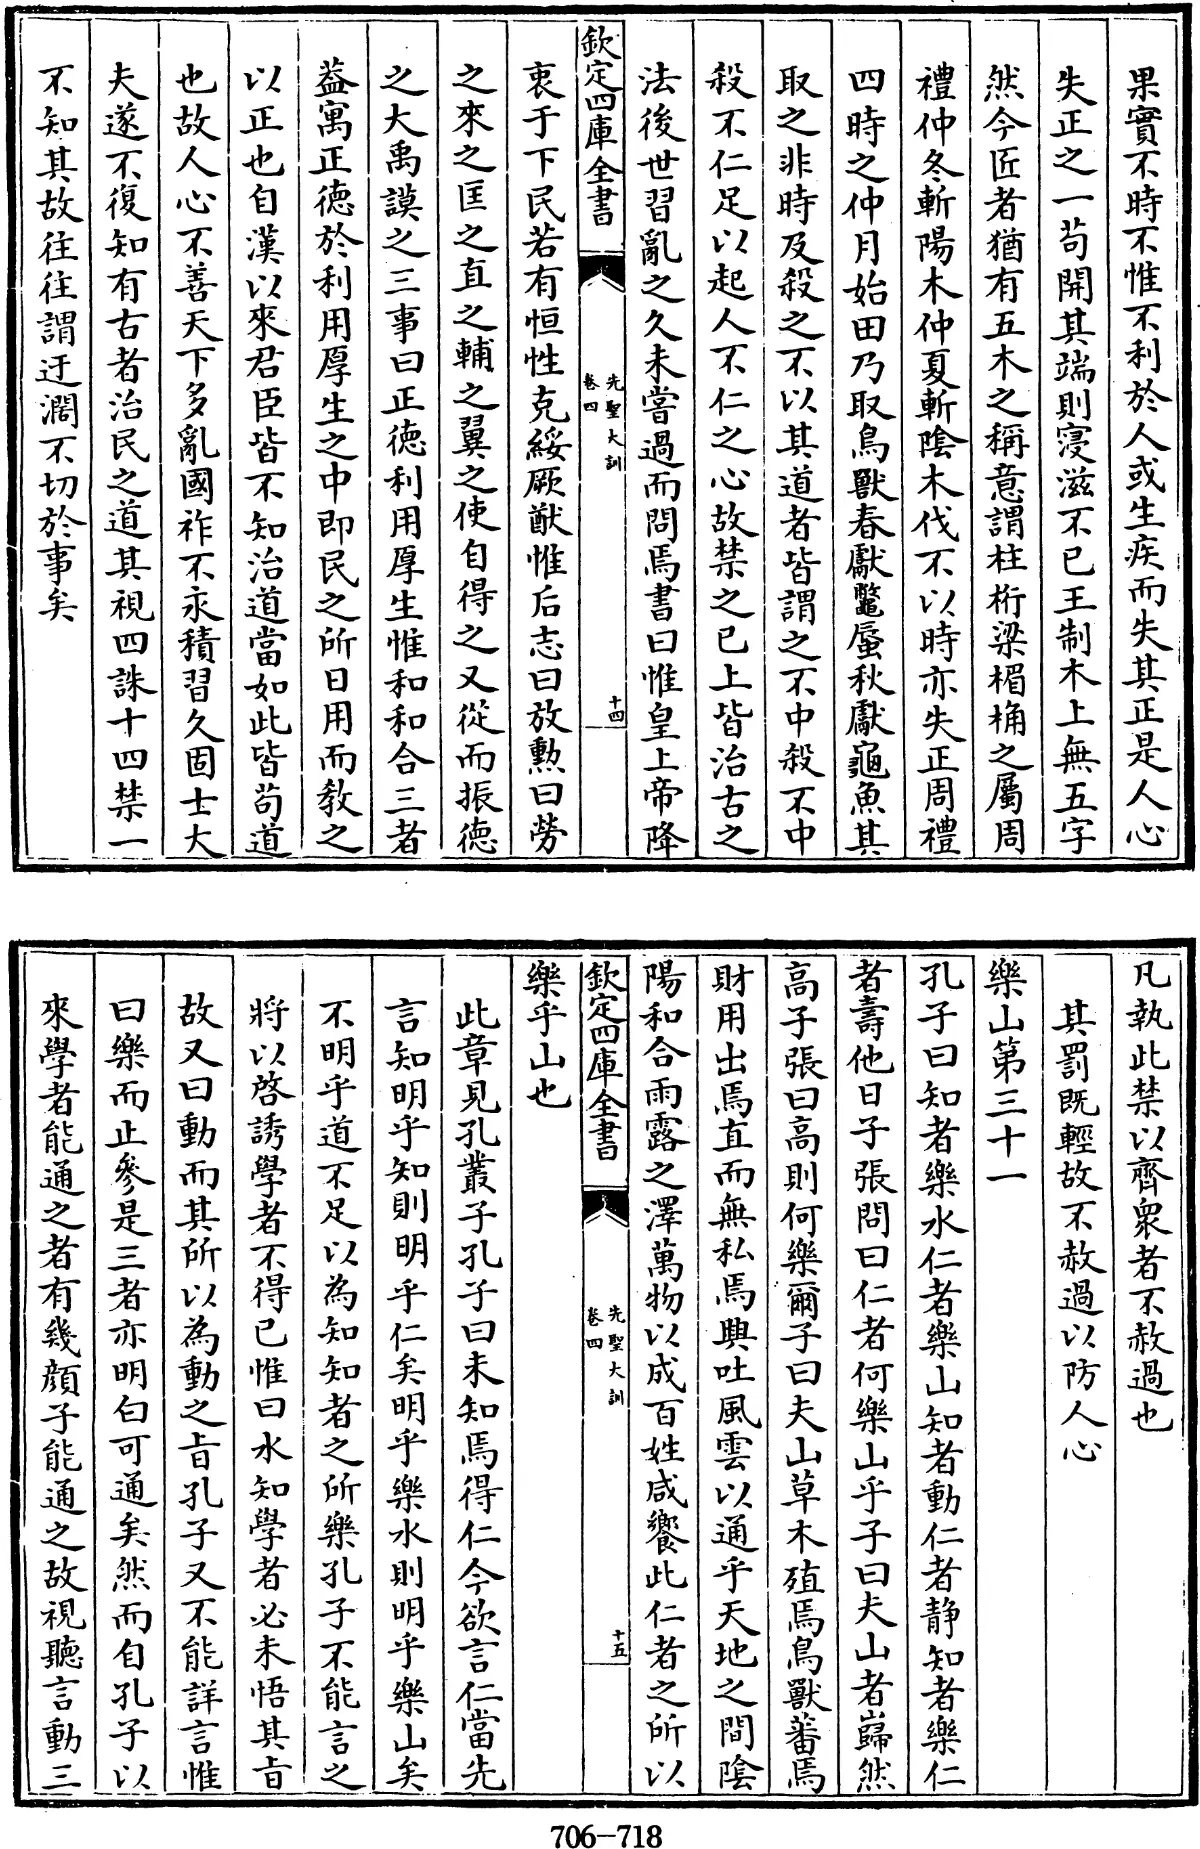 果實不時不惟不利於人或生疾而失其正是人心
失正之一茍開其端則寖滋不已王制木上無五字
然今匠者猶有五木之稱意謂柱桁梁楣桷之屬周
禮仲冬斬陽木仲夏斬陰木伐不以時亦失正周禮
四時之仲月始田乃取鳥獸春獻鼈蜃秋獻龜魚其
取之非時及殺之不以其道者皆謂之不中殺不中
殺不仁足以起人不仁之心故禁之已上皆治古之
法後世習亂之久未嘗過而問焉書曰惟皇上帝降
欽定四庫全書
先聖大訓
卷四
十四
衷于下民若有恒性克綏厥猷惟后志曰放勲曰勞
之來之匡之直之輔之翼之使自得之又從而振德
之大禹謨之三事曰正德利用厚生惟和和合三者
葢寓正德於利用厚生之中即民之所日用而教之
以正也自漢以來君臣皆不知治道當如此皆茍道
也故人心不善天下多亂國祚不永積習久固士大
夫遂不復知有古者治民之道其視四誅十四禁一
不知其故往往謂迂濶不切於事矣
凡執此禁以齊衆者不赦過也
其罰既輕故不赦過以防人心
樂山第三十一
孔子曰知者樂水仁者樂山知者動仁者静知者樂仁
者壽他日子張問曰仁者何樂山乎子曰夫山者巋然
高子張曰高則何樂爾子曰夫山草木殖焉鳥獸蕃焉
財用出焉直而無私焉興吐風雲以通乎天地之間陰
陽和合雨露之澤萬物以成百姓咸饗此仁者之所以
欽定四庫全書
先聖大訓
卷四
十五
樂乎山也
此章見孔叢子孔子曰未知焉得仁今欲言仁當先
言知明乎知則明乎仁矣明乎樂水則明乎樂山矣
不明乎道不足以為知知者之所樂孔子不能言之
將以啓誘學者不得已惟曰水知學者必未悟其旨
故又曰動而其所以為動之旨孔子又不能詳言惟
曰樂而止參是三者亦明白可通矣然而自孔子以
來學者能通之者有幾顔子能通之故視聽言動三
706-718